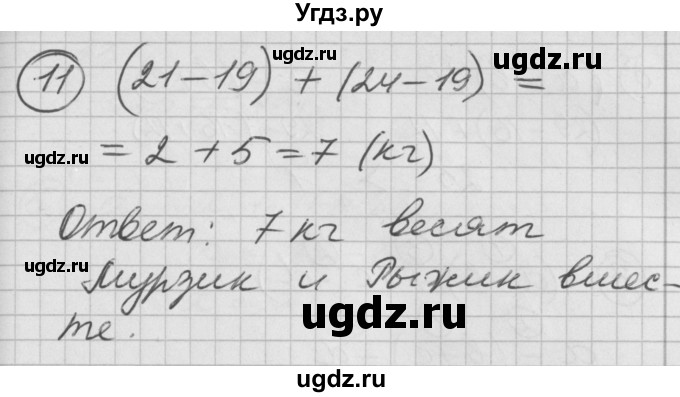 Угдз.ру
ugdz.ru
11 (21-19) + (24-19) =
ugdz.ru
ugdz.ru
= 2 + 5 = 7 (кг)
Ответ: 7 кг весят
ugdz.ru
Мурзик и Рыжик вмес-
ugdz.ru
те.
ugdz.ru